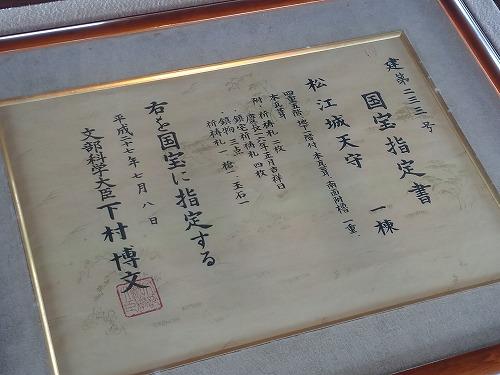 建第二三三号
国宝指定書
松江城天守 一棟
四重五階、地下一階付、本瓦葺、南面附櫓一重、
本瓦葺
附・祈祷札 二枚
慶長十六年正月吉祥日
・鎮宅祈祷札 四枚
・鎮物 三点
祈祷札一 槍一 玉石一
右を国宝に指定する
平成二十七年七月八日
文部科学大臣 下村博文